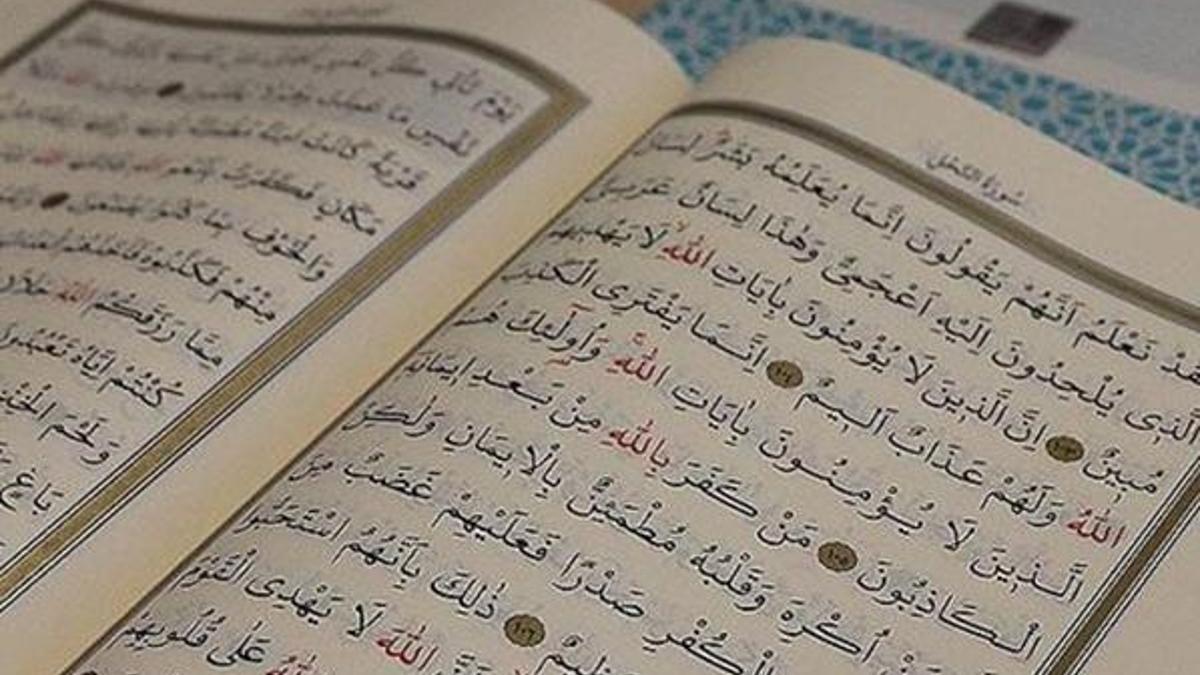 سُورَةُ النَّحْلِ
نَعْلَمُ اَنَّهُمْ يَقُولُونَ اِنَّمَا يُعَلِّمُهُ بَشَرٌ لِسَانُ
الَّذِى يُلْحِدُونَ اِلَيْهِ اَعْجَمِىٌّ وَهٰذَا لِسَانٌ عَرَبِىٌّ
مُبِينٌ ١٠٣ اِنَّ الَّذِينَ لَا يُؤْمِنُونَ بِاٰيَاتِ اللّٰهِ لَا يَهْدِيهِمُ
اللّٰهُ وَلَهُمْ عَذَابٌ اَلِيمٌ ١٠٤ اِنَّمَا يَفْتَرِى الْكَذِبَ
الَّذِينَ لَا يُؤْمِنُونَ بِاٰيَاتِ اللّٰهِ وَاُولٰٓئِكَ هُمُ
الْكَاذِبُونَ ١٠٥ مَنْ كَفَرَ بِاللّٰهِ مِنْ بَعْدِ اِيمَانِهِ
اُكْرِهَ وَقَلْبُهُ مُطْمَئِنٌّ بِالْاِيمَانِ وَلٰكِنْ
بِالْكُفْرِ صَدْرًا فَعَلَيْهِمْ غَضَبٌ مِنَ
عَظِيمٌ ١٠٦ ذٰلِكَ بِاَنَّهُمُ اسْتَحَبُّوا
اللّٰهَ لَا يَهْدِى الْقَوْمَ
اللّٰهُ عَلٰى قُلُوبِهِمْ
يَوْمَ تَأْتِى كُلُّ نَفْسٍ
نَفْسٍ مَا عَمِلَتْ وَهُمْ لَا يُظْلَمُونَ
قَرْيَةً كَانَتْ اٰمِنَةً مُطْمَئِنَّةً
مَكَانٍ فَكَفَرَتْ بِاَنْعُمِ اللّٰهِ
وَالْخَوْفِ بِمَا كَانُوا يَصْنَعُونَ
مِنْهُمْ فَكَذَّبُوهُ فَاَخَذَهُمُ الْعَذَابُ
مِمَّا رَزَقَكُمُ اللّٰهُ حَلَالًا
كُنْتُمْ اِيَّاهُ تَعْبُدُونَ
وَلَحْمَ الْخِنْزِيرِ
بَاغٍ